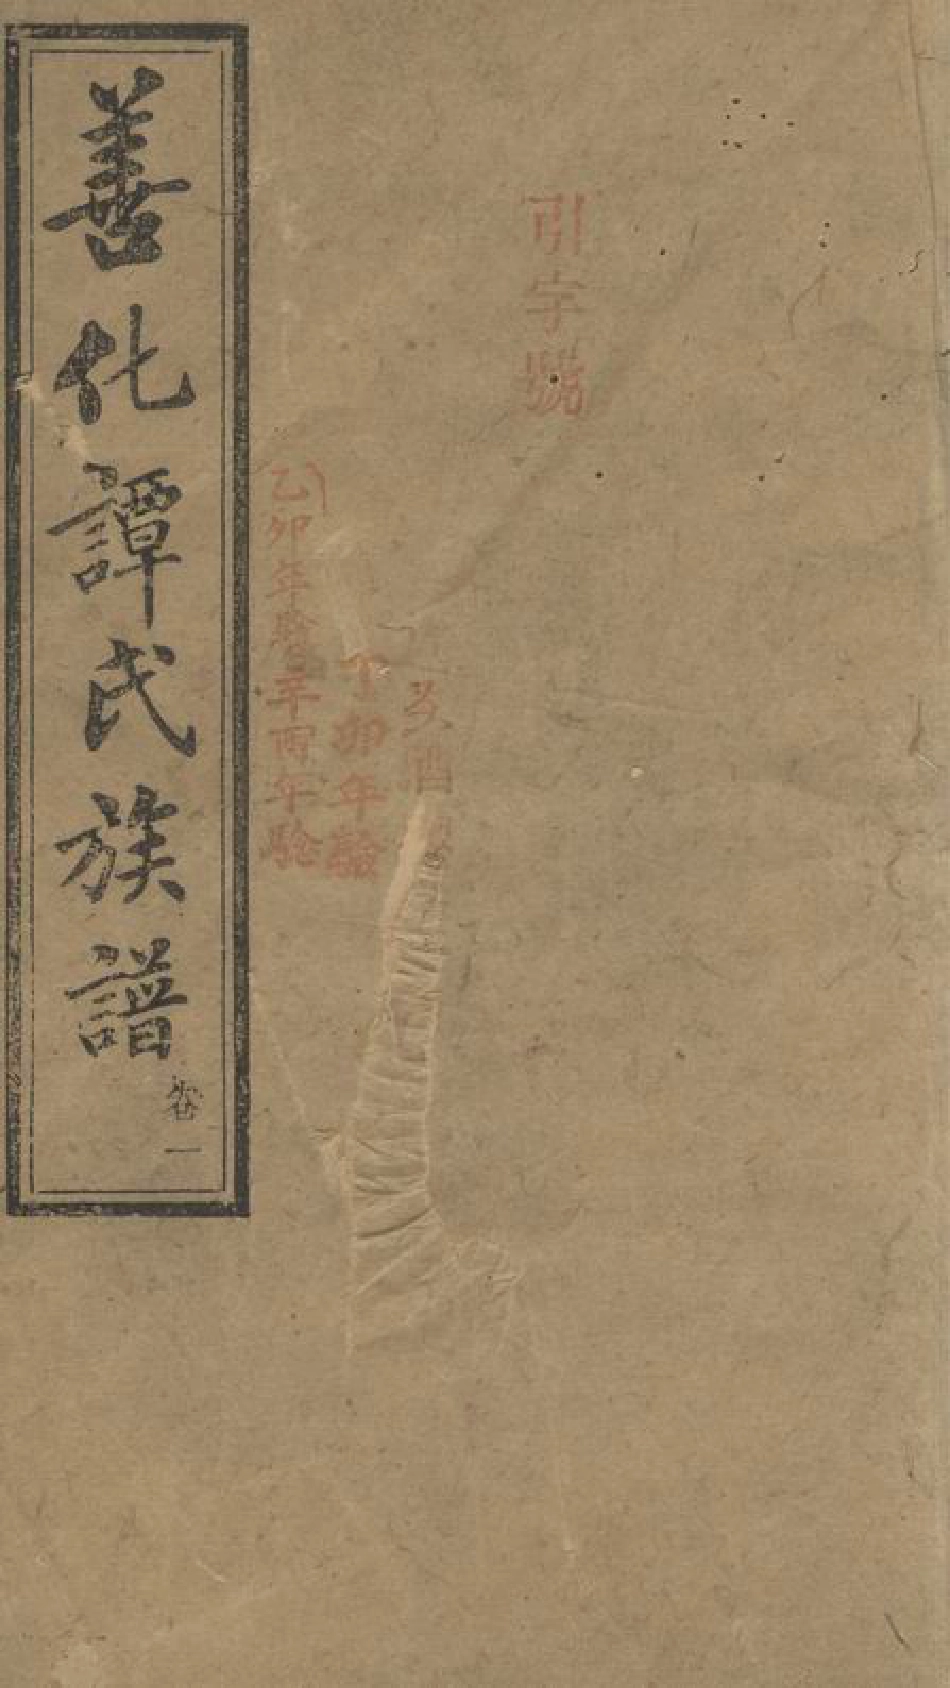 引字號
丁卯年驗
乙卯年驗辛酉年驗
善化譚氏族譜
卷一